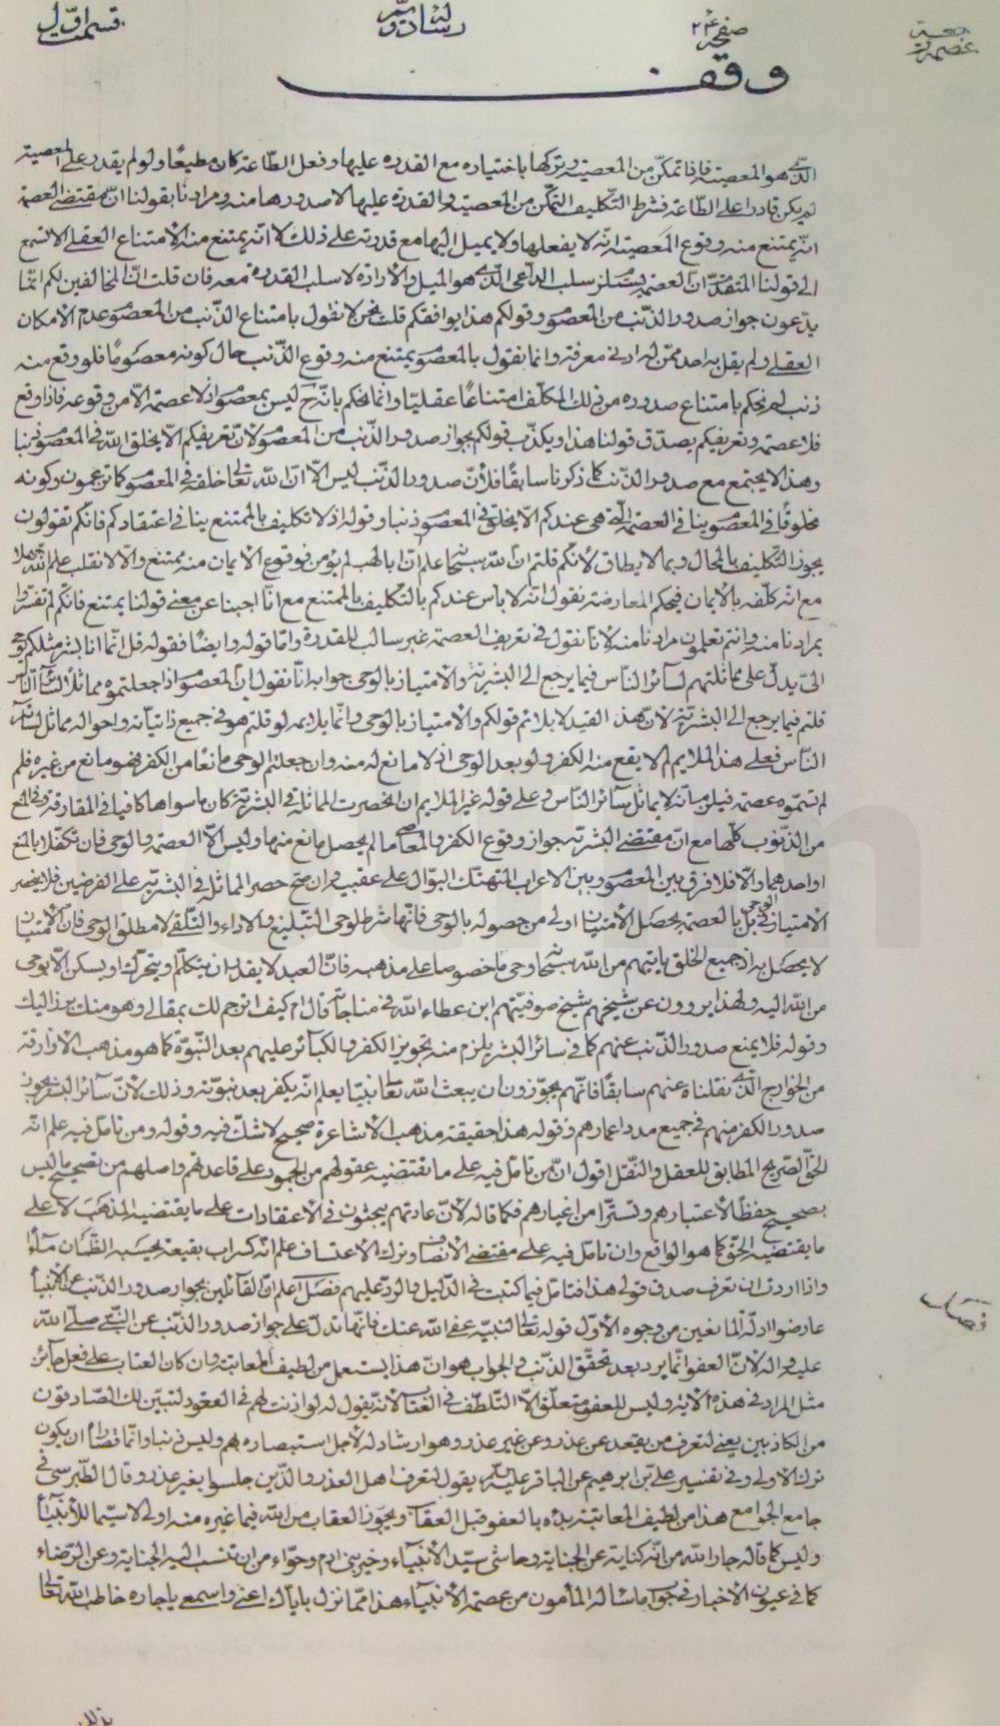 قسمت اول
رسالة دوم
صفحة ٢٤
عصمة
وقف
الذي هو المعصية فاذا تمكّن من المعصية وتركها باختياره مع القدرة عليها وفعل الطاعة كان مطيعًا ولو لم يقدر على المعصية
لم يكن قادرا على الطاعة فشرط التكليف التمكّن من المعصية والقدرة عليها لا صدورها منه ومرادنا بقولنا انّ مقتضى العصمة
انّه يمتنع منه وقوع المعصية انّه لا يفعلها ولا يميل اليها مع قدرته على ذلك لا انّه يمتنع منه الامتناع العقلى الا تسمع
الى قولنا المتقدّم انّ العصمة تستلزم سلب الداعى الذى هو الميل والارادة لا سلب القدرة معه فان قلت انّ المخالفين لكم انّما
يدّعون جواز صدور الذنب من المعصوم وقولكم هذا يوافقكم قلت نحن لا نقول بامتناع الذنب من المعصوم عدم الامكان
العقلى ولم يقل به احد ممّن له ادنى معرفة وانما نقول بالمعصوم يمتنع منه وقوع الذنب حال كونه معصومًا فلو وقع منه
ذنب لم نحكم بامتناع صدوره من ذلك المكلّف امتناعًا عقليّا وانما نحكم بانّه ح ليس بمعصوم اذ لا عصمة الا من وقوعه فاذا وقع
فلا عصمة وتعريفكم يصدّق قولنا هذا ويكذّب قولكم بجواز صدور الذنب من المعصوم لانّ تعريفكم الّا يخلق الله فى المعصوم ذنبا
وهذا لا يجتمع مع صدور الذنب كما ذكرنا سابقًا فلانّ صدور الذنب ليس الّا انّ الله تعالى خلقه فى المعصوم كما تزعمون وكونه
مخلوقًا فى المعصوم ينافى العصمة التى هى عندكم الّا يخلق فى المعصوم ذنبا وقوله اذ لا تكليف بالممتنع ينافى اعتقادكم فانّكم تقولون
يجوز التكليف بالمحال وبما لا يطاق لانّكم قلتم انّ الله سبحانه علم انّ ابا لهب لم يؤمن فوقوع الايمان منه ممتنع والّا لانقلب علم الله جهلا
مع انّه كلّفه بالايمان فبحكم المعارضة نقول انّه لا باس عندكم بالتكليف بالممتنع مع انّا اجبنا عن معنى قولنا يمتنع فانّكم لم تفسّروا
بمرادنا منه وانتم تعلمون مرادنا منه لانّا نقول فى تعريف العصمة غير سالب للقدرة وامّا قوله وايضًا فقوله قل انّما انا بشر مثلكم يوحى
الىّ يدلّ على مماثلتهم لسائر الناس فيما يرجع الى البشرية والامتياز بالوحى جوابه انّا نقول انّ المعصوم اذا جعلتموه مماثلا لسائر الناس
قلتم فيما يرجع الى البشرية لانّ هذا القيد لا يلائم قولكم والامتياز بالوحى وانّما يلايمه لو قلتم هو فى جميع ذاتياته واحواله مماثل لسائر
الناس فعلى هذا الملايم لم لا يقع منه الكفر ولو بعد الوحى اذ لا مانع له منه وان جعلتم الوحى مانعًا من الكفر فهو مانع من غيره فلم
لم تسمّوه عصمة فيلزم انّه لا يماثل سائر الناس وعلى قوله غير الملايم ان انحصرت المماثلة فى البشرية كان ما سواها كافيا فى المفارقة
من الذنوب كلّها مع انّ مقتضى البشرية جواز وقوع الكفر والمعاصى ما لم يحصل مانع منها وليس الّا العصمة والوحى فان تكفّلا بالمنع
او احدهما والّا فلا فرق بين المعصوم وبين الاعراب المتهتّك البوّال على عقبيه وان صحّ حصر التماثل فى البشرية على الفرضين فلا ينحصر
الامتياز فى الوحى بل بالعصمة يحصل الامتياز اولى من حصوله بالوحى فانّها شرط لوحى التبليغ والاداء والتلقى لا مطلق الوحى فانّ الامتياز
لا يحصل به اذ جميع الخلق ياتيهم من الله سبحانه وحى ما خصوصا على مذهبه فانّ العبد لا يقدر ان يتكلّم او يتحرّك او يسكن الّا بوحى
من الله اليه ولهذا يروون عن شيخهم شيخ صوفيّتهم ابن عطاء الله فى مناجاته قال ام كيف اترجم لك بمقالى وهو منك برز اليك
وقوله فلا يمنع صدور الذنب عنهم كما فى سائر البشر يلزم منه تجويز الكفر والكبائر عليهم بعد النبوّة كما هو مذهب الازارقة
من الخوارج الذى نقلناه عنهم سابقًا فانّهم يجوّزون ان يبعث الله تعالى نبيّا يعلم انّه يكفر بعد نبوّته وذلك لانّ سائر البشر يجوز
صدور الكفر منهم فى جميع مدد اعمارهم وقوله هذا حقيقة مذهب الاشاعرة صحيح لا شك فيه وقوله ومن تامّل فيه علم انّه
الحقّ الصريح المطابق للعقل والنقل اقول انّ من تامّل فيه على ما تقتضيه عقولهم من الجمود على قاعدتهم واصلهم من تصحيح ما ليس
بصحيح حفظًا لاعتبارهم وتستّرا من اغيارهم فكما قاله لانّ عادتهم يبحثون فى الاعتقادات على ما يقتضيه المذهب لا على
ما يقتضيه الحقّ كما هو الواقع وان تامّل فيه على مقتضى الانصاف وترك الاعتساف علم انّه كسراب بقيعة يحسبه الظمآن ماءً
واذا اردت ان تعرف صدق قولى هذا فتامّل فيما كتبت فى الدليل والردّ عليهم فصل اعلم انّ القائلين بجواز صدور الذنب عن الانبياء
عارضوا ادلّة المانعين من وجوه الاوّل قوله تعالى لنبيّه عفى الله عنك فانّها تدلّ على جواز صدور الذنب عن النبى صلّى الله
عليه واله لانّ العفو انّما يرد بعد تحقّق الذنب والجواب هو انّ هذا يستعمل من لطيف المعاتبة وان كان العتاب على فعل جائز
مثل المراد فى هذه الاية وليس للعفو متعلّق الّا التلطّف فى العتاب لانّه يقول له لو اذنت لهم فى القعود لتبيّن لك الصادقون
من الكاذبين يعنى لتعرف من يقعد عن عذر وعن غير عذر وهو ارشاد له لاجل استبصاره بهم وليس ذنبا وانّما قصاراه ان يكون
ترك الاولى وفى تفسير علىّ بن ابرهيم عن الباقر عليه السلام يقول لتعرف اهل العذر والذين جلسوا بغير عذر وقال الطبرسى فى
جامع الجوامع هذا من لطيف المعاتبة بدء بالعفو قبل العتاب ويجوز العتاب من الله فيما غيره منه اولى لا سيّما للانبياء
وليس كما قاله جار الله من انّه كناية عن الجناية وحاشى سيّد الانبياء وخير بنى ادم وحوّاء من ان تنسب اليه الجناية وعن الرضاء
كما فى عيون الاخبار فى جواب ما سأله المأمون من عصمة الانبياء هذا ممّا نزل باياك اعنى واسمعى يا جاره خاطب الله تعالى
فصل
بذلك